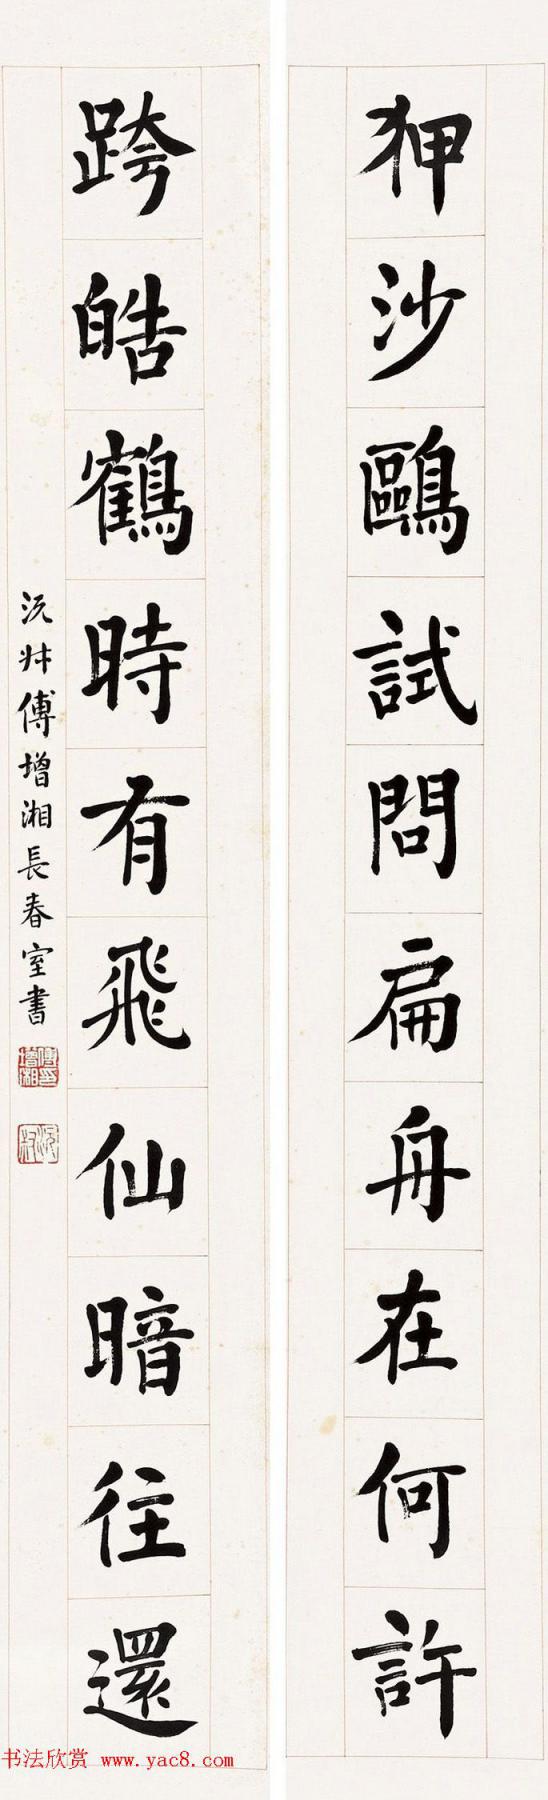 狎沙鷗試問扁舟在何許
跨皓鶴時有飛仙暗往還
沅叔傅增湘長春室書
傅增湘印
沅叔
书法欣赏 www.yac8.com